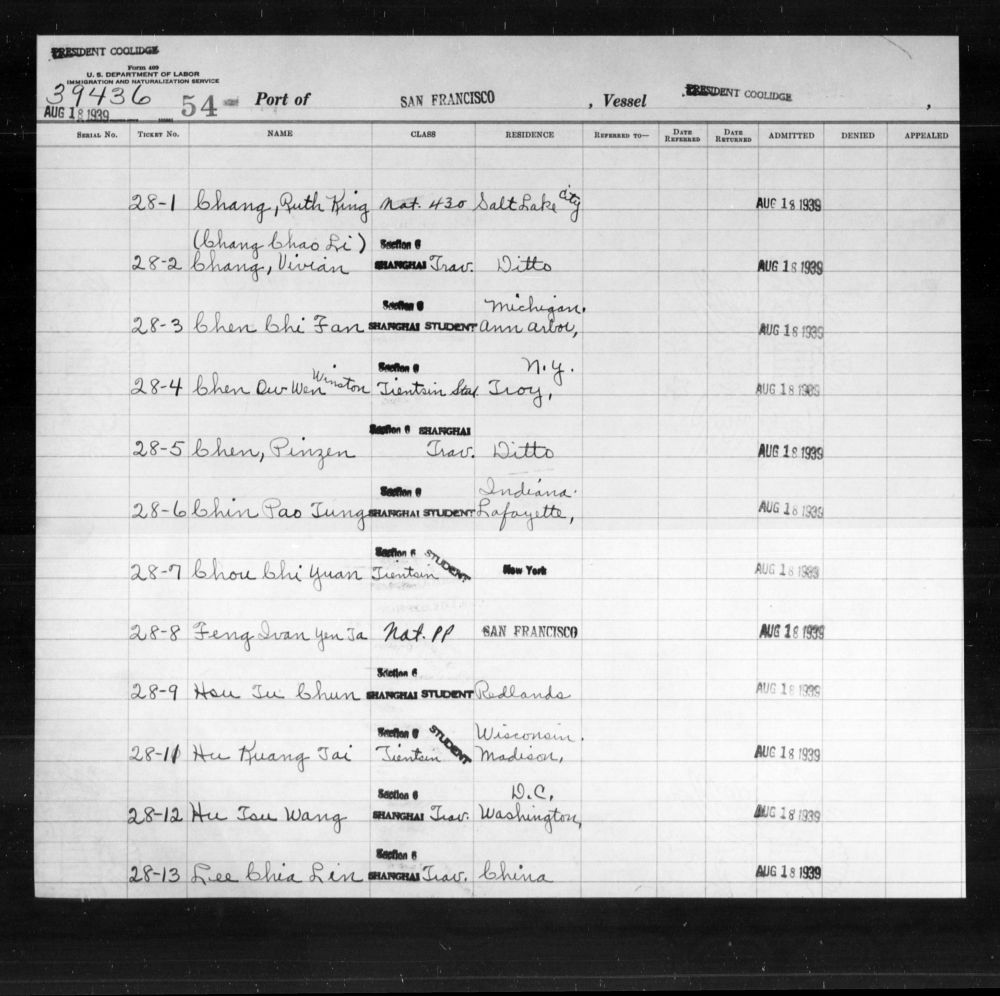 PRESIDENT COOLIDGE
Form 409
U. S. DEPARTMENT OF LABOR
IMMIGRATION AND NATURALIZATION SERVICE
39436 54 Port of SAN FRANCISCO , Vessel PRESIDENT COOLIDGE ,
AUG 18 1939
SERIAL No. TICKET No. NAME CLASS RESIDENCE REFERRED TO— DATE REFERRED DATE RETURNED ADMITTED DENIED APPEALED
28-1 Chang, Ruth King Nat. 430 Salt Lake City AUG 18 1939
(Chang Chao Li) Section 6
28-2 Chang, Vivian SHANGHAI Trav. Ditto AUG 18 1939
Section 6 Michigan.
28-3 Chen Chi Fan SHANGHAI STUDENT Ann Arbor, AUG 18 1939
Section 6 N.Y.
28-4 Chen Ow Wen Winston Tientsin Troy, AUG 18 1939
Section 6 SHANGHAI
28-5 Chen, Pinzen Trav. Ditto AUG 18 1939
Section 6 Indiana.
28-6 Chin Pao Tung SHANGHAI STUDENT Lafayette, AUG 18 1939
Section 6 STUDENT
28-7 Chou Chi Yuan Tientsin New York AUG 18 1939
28-8 Feng Ivan Yen Ta Nat. PP SAN FRANCISCO AUG 18 1939
Section 6
28-9 Hsu Tu Chun SHANGHAI STUDENT Redlands AUG 18 1939
Section 6 STUDENT Wisconsin.
28-11 Hu Kuang Tai Tientsin Madison, AUG 18 1939
Section 6 D.C.
28-12 Hu Tsu Wang SHANGHAI Trav. Washington, AUG 18 1939
Section 6
28-13 Lee Chia Lin SHANGHAI Trav. China AUG 18 1939